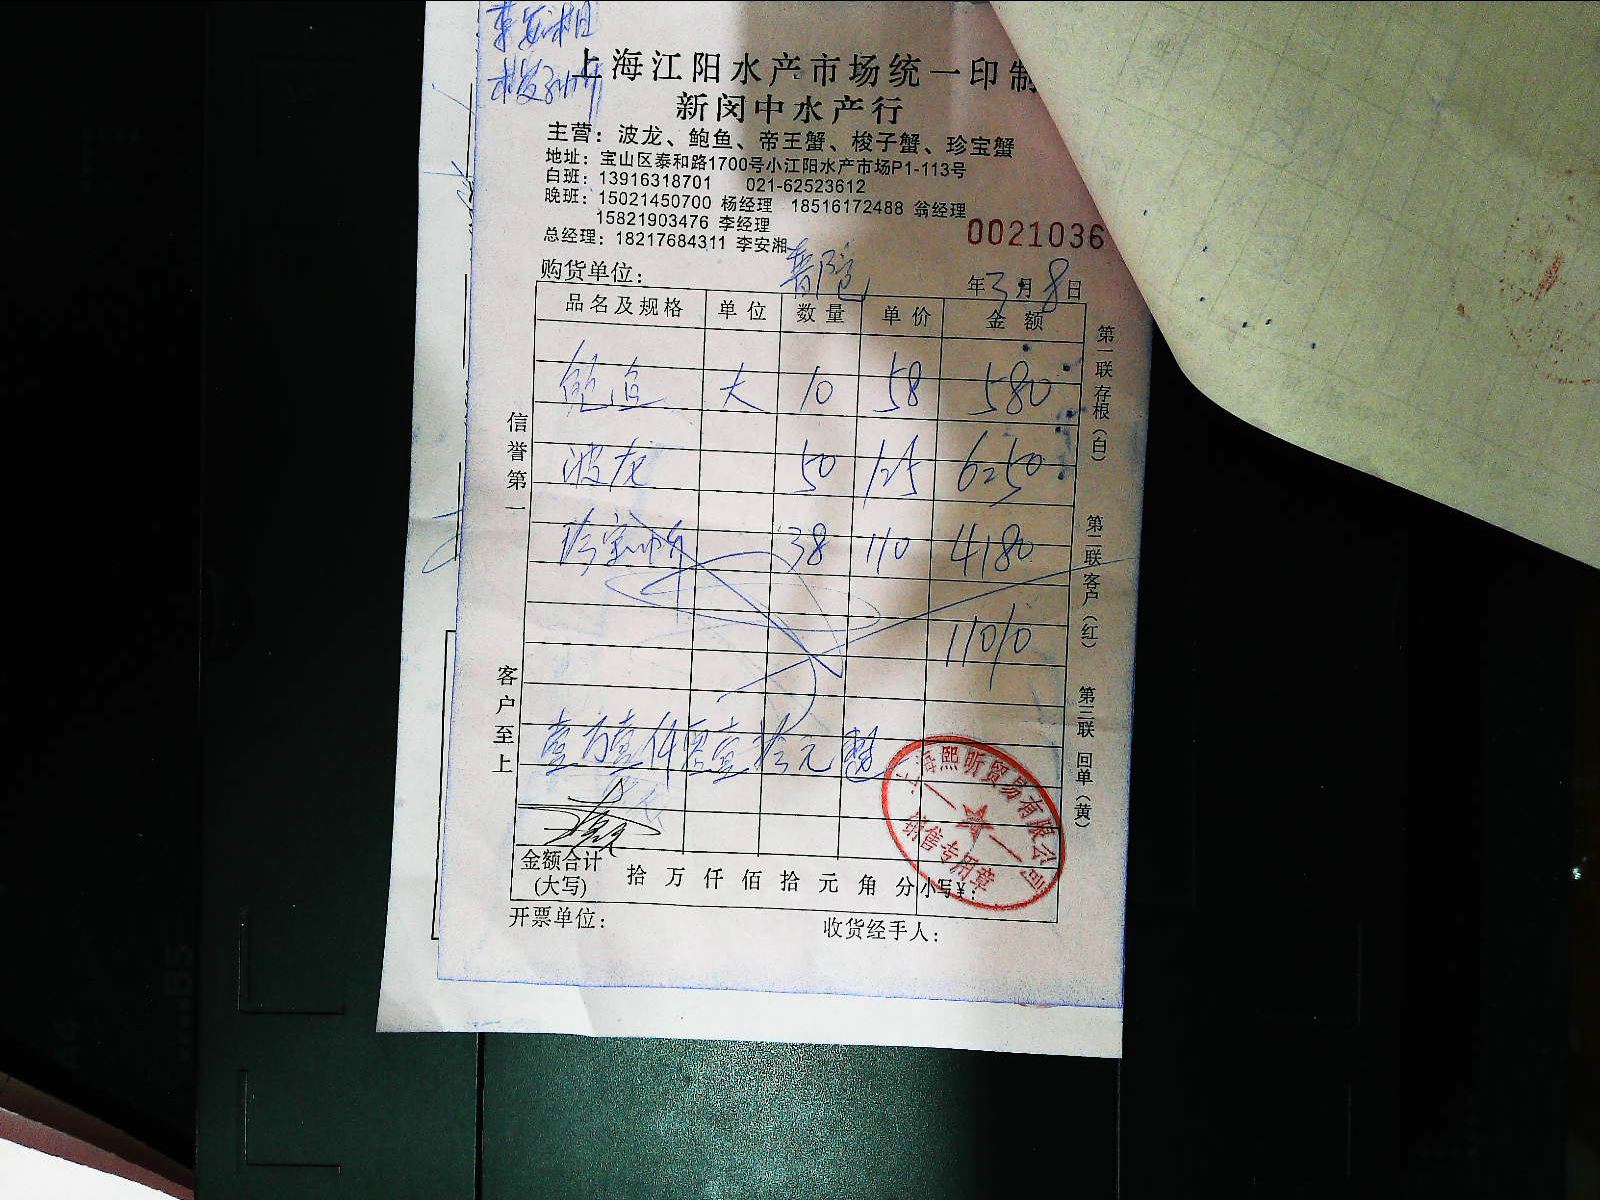 李安湘
上海江阳水产市场统一印制
新闵中水产行
主营：波龙、鲍鱼、帝王蟹、梭子蟹、珍宝蟹
地址：宝山区泰和路1700号小江阳水产市场P1-113号
白班：13916318701 021-62523612
晚班：15021450700 杨经理 18516172488 翁经理
15821903476 李经理
0021036
总经理：18217684311 李安湘
购货单位： 年3月8日
品名及规格 单位 数量 单价 金额
鲍鱼 大 10 58 580
波龙 50 125 6250
珍宝蟹 38 110 4180
11010
壹万壹仟零壹拾元整
金额合计
(大写)
拾 万 仟 佰 拾 元 角 分 小写¥：
开票单位： 收货经手人：
信誉第一
客户至上
第一联 存根（白）
第二联 客户（红）
第三联 回单（黄）
上海熙昕贸易有限公司
销售专用章